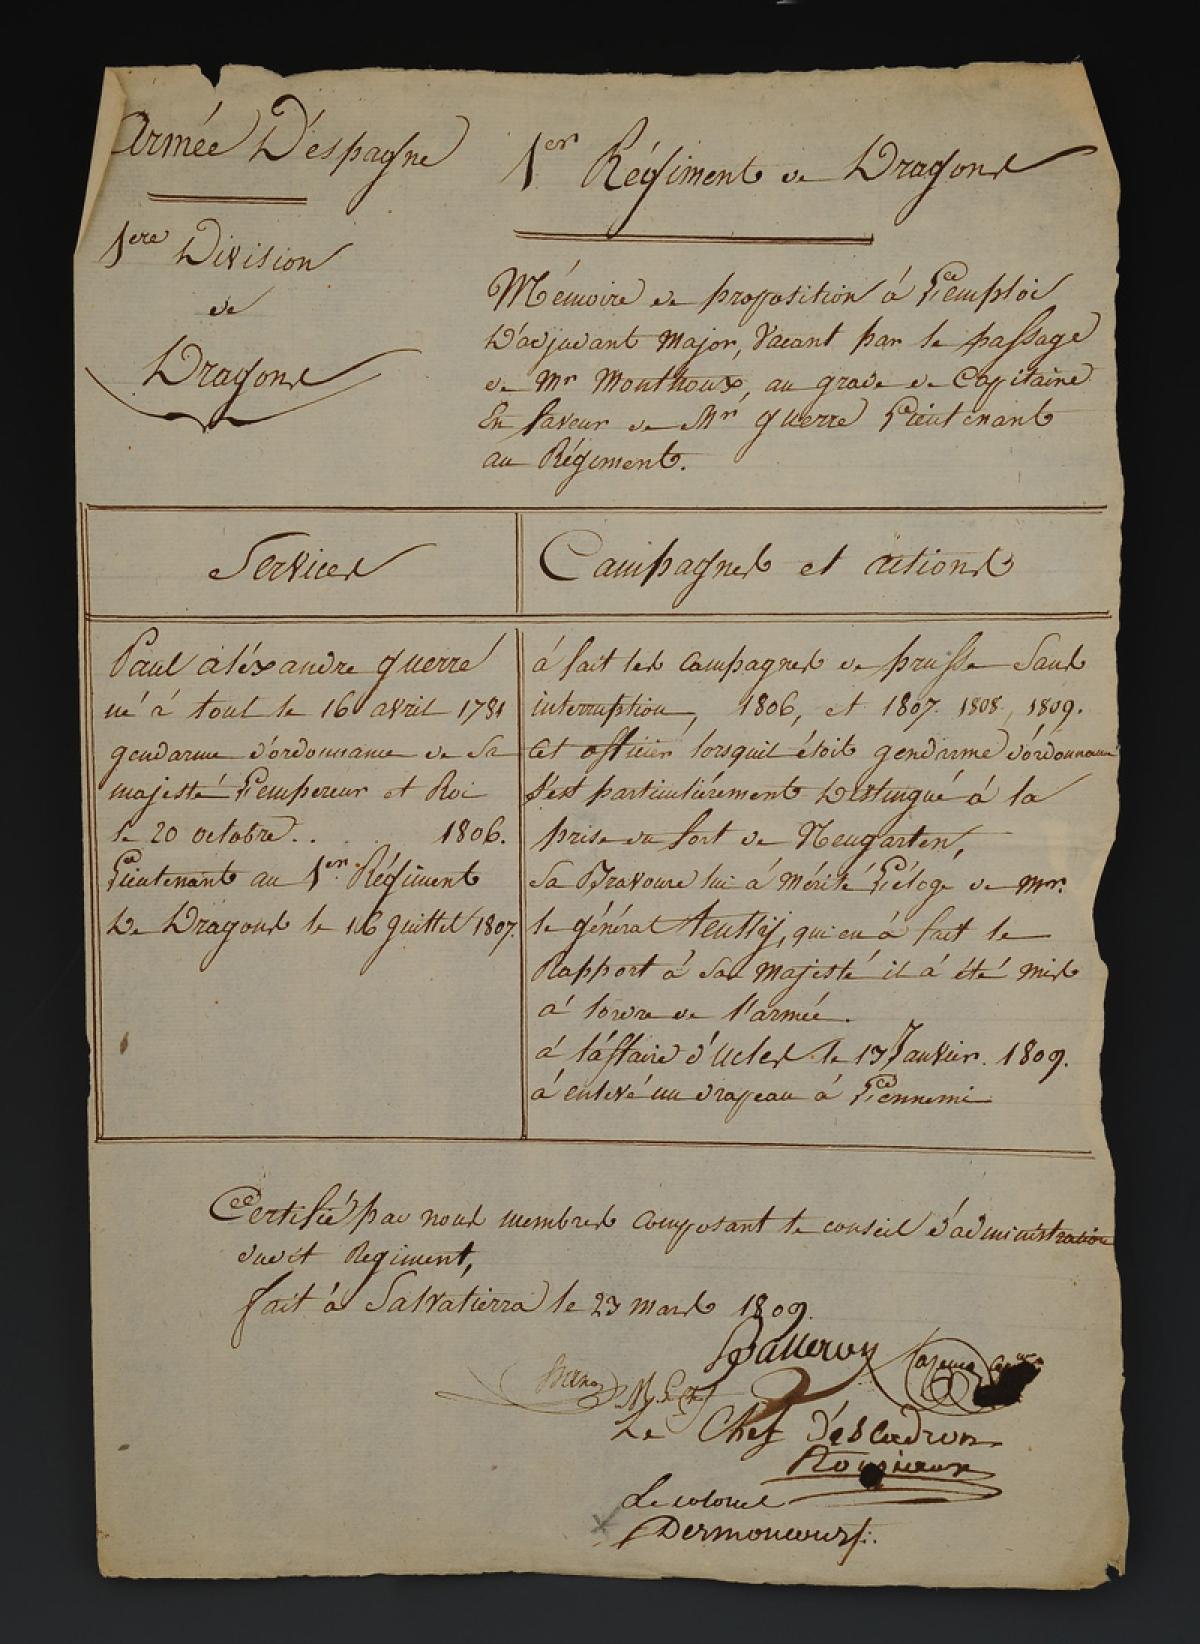 Armée D'espagne
1ere Division
de
Dragons
1er Régiment de Dragons
Mémoire de proposition à L'emploi
D'adjudant Major, Vacant par le passage
de Mr Monthoux, au grade de Capitaine
En faveur de Mr guerre Lieutenant
au Régiment.
Services
Campagnes et actions
Paul aléxandre guerre
né à toul le 16 avril 1781
gendarme d'ordonnance de Sa
majesté L'empereur et Roi
le 20 octobre . . . 1806.
Lieutenant au 1er Régiment
De Dragons le 16 Juillet 1807.
à fait les campagnes de prusse Sans
interruption, 1806, et 1807. 1808, 1809.
Cet officier lorsquil étoit gendarme d'ordonnance
s'est particuliérement Distingué à la
prise du fort de Neugarten,
Sa Bravoure lui à Mérité L'éloge de mr.
le général teulliÿ, qui en à fait le
Rapport à Sa Majesté il à été mis
à lordre de l'armée.
à l'affaire d'uclès le 13 Janvier 1809.
à enlevé un drapeau à L'ennemi
Certifié par nous membres composant le conseil d'administration
dudit Régiment,
fait à Salvatierra le 23 mars 1809.
Le Chef d'escadron
Le colonel
Dermoncourt.